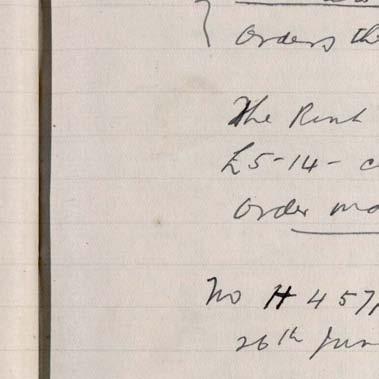 Orders th
The Rent
£5-14-
Order ma
No H 457
26th Jun